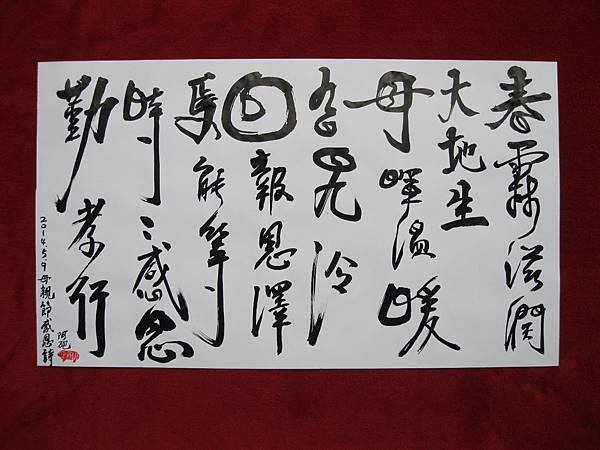 春霖滋潤
大地生
母暉溫暖
冷
回報恩澤
焉能等
時〻感恩
勤孝行
2014.5.9母親節感恩詩